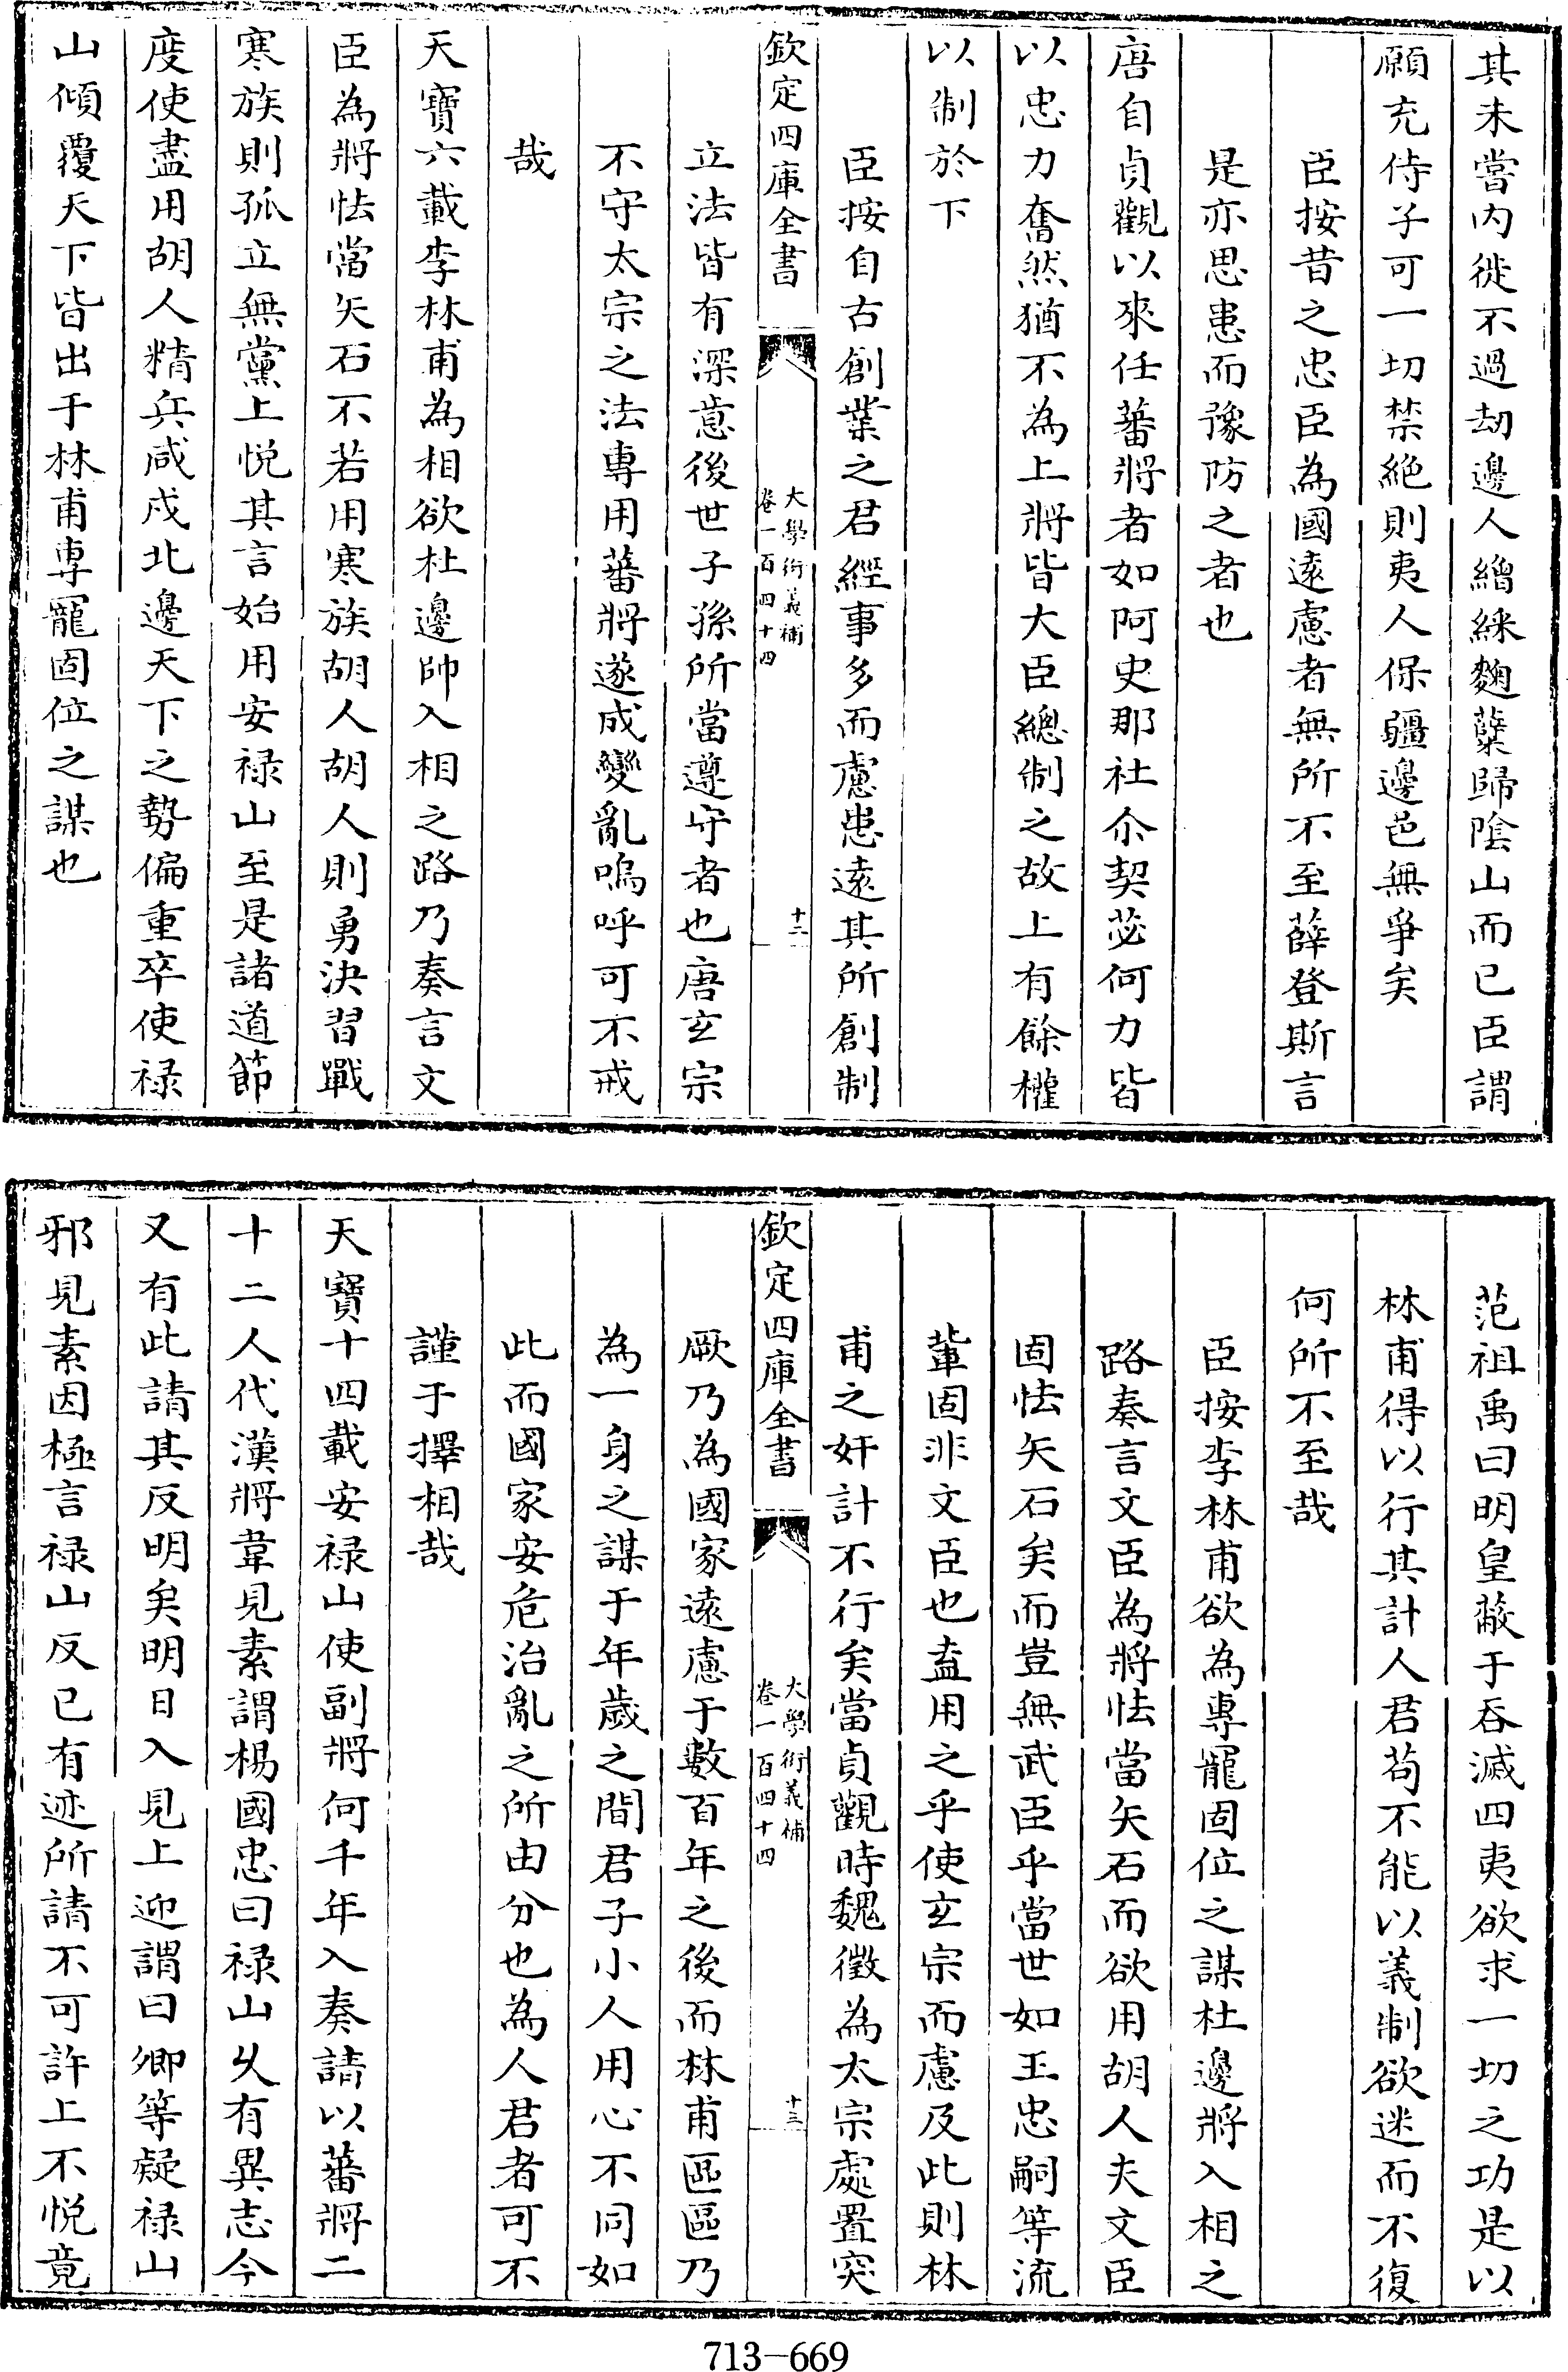 其未嘗内徙不過劫邊人繒綵麴糵歸陰山而已臣謂
願充侍子可一切禁絶則夷人保疆邊邑無爭矣
臣按昔之忠臣為國遠慮者無所不至薛登斯言
是亦思患而豫防之者也
唐自貞觀以來任蕃將者如阿史那社尒契苾何力皆
以忠力奮然猶不為上將皆大臣總制之故上有餘權
以制於下
臣按自古創業之君經事多而慮患遠其所創制
欽定四庫全書
大學衍義補
卷一百四十四
十二
立法皆有深意後世子孫所當遵守者也唐玄宗
不守太宗之法專用蕃將遂成變亂嗚呼可不戒
哉
天寶六載李林甫為相欲杜邊帥入相之路乃奏言文
臣為將怯當矢石不若用寒族胡人胡人則勇決習戰
寒族則孤立無黨上悦其言始用安禄山至是諸道節
度使盡用胡人精兵咸戍北邊天下之勢偏重卒使禄
山傾覆天下皆出于林甫專寵固位之謀也
范祖禹曰明皇蔽于吞滅四夷欲求一切之功是以
林甫得以行其計人君苟不能以義制欲迷而不復
何所不至哉
臣按李林甫欲為專寵固位之謀杜邊將入相之
路奏言文臣為將怯當矢石而欲用胡人夫文臣
固怯矢石矣而豈無武臣乎當世如王忠嗣等流
輩固非文臣也盍用之乎使玄宗而慮及此則林
甫之奸計不行矣當貞觀時魏徵為太宗處置突
欽定四庫全書
大學衍義補
卷一百四十四
十三
厥乃為國家遠慮于數百年之後而林甫區區乃
為一身之謀于年歲之間君子小人用心不同如
此而國家安危治亂之所由分也為人君者可不
謹于擇相哉
天寶十四載安禄山使副將何千年入奏請以蕃將二
十二人代漢將韋見素謂楊國忠曰禄山乆有異志今
又有此請其反明矣明日入見上迎謂曰卿等疑禄山
邪見素因極言禄山反已有迹所請不可許上不悦竟
713-669